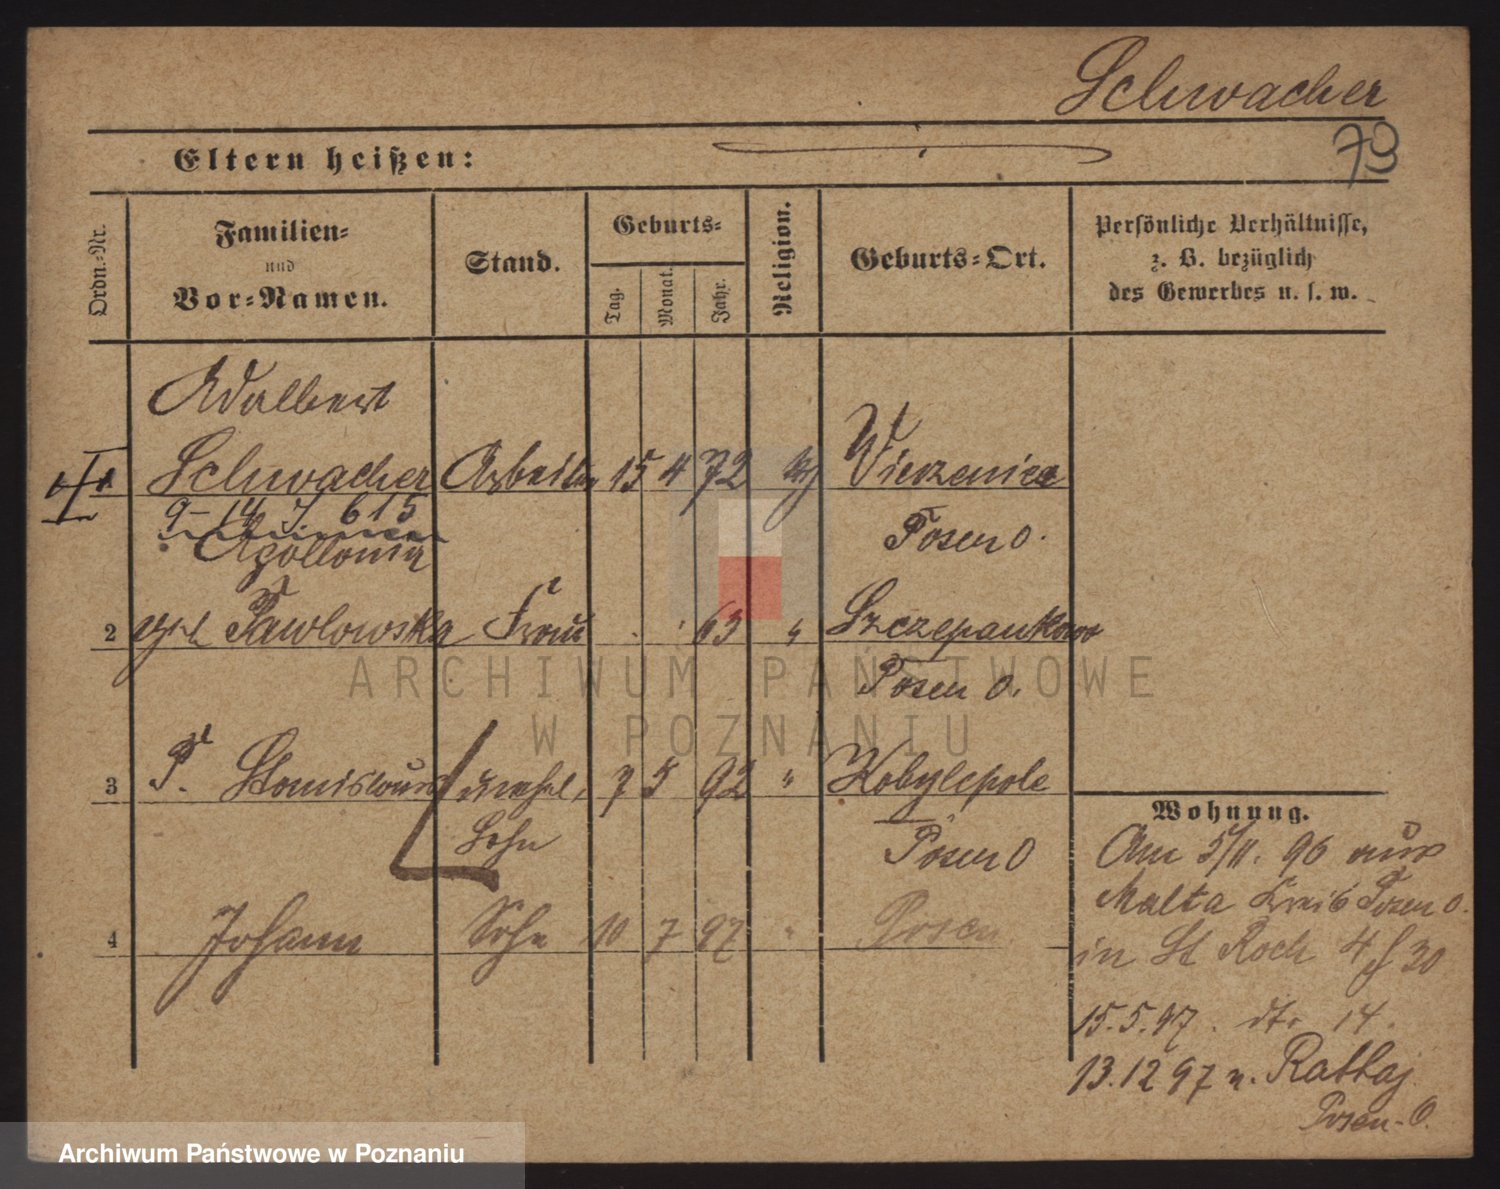 Schwacher
79
Eltern heißen:
Ordn.-Nr.
Familien-
und
Vor-Namen.
Stand.
Geburts-
Tag.
Monat.
Jahr.
Religion.
Geburts-Ort.
Persönliche Verhältnisse,
z. B. bezüglich
des Gewerbes u. s. w.
Adalbert
Schwacher Arbeiter 15 4 72 Wierzenica
9-14 J. 615
Posen O.
Apollonia
2 Pawlowska Frau 63 " Szczepankowo
Posen O.
3 Stanislaus unehel. 7 5 92 " Kobylepole
Sohn
Posen O
4 Johann Sohn 10 7 97 " Posen
Wohnung.
Am 5/11. 96 aus
Malta Kreis Posen O.
in St Roch 4 30
15.5.97. dto 14.
13.12 97 n. Rattaj
Posen-O.
ARCHIWUM PAŃSTWOWE
W POZNANIU
Archiwum Państwowe w Poznaniu